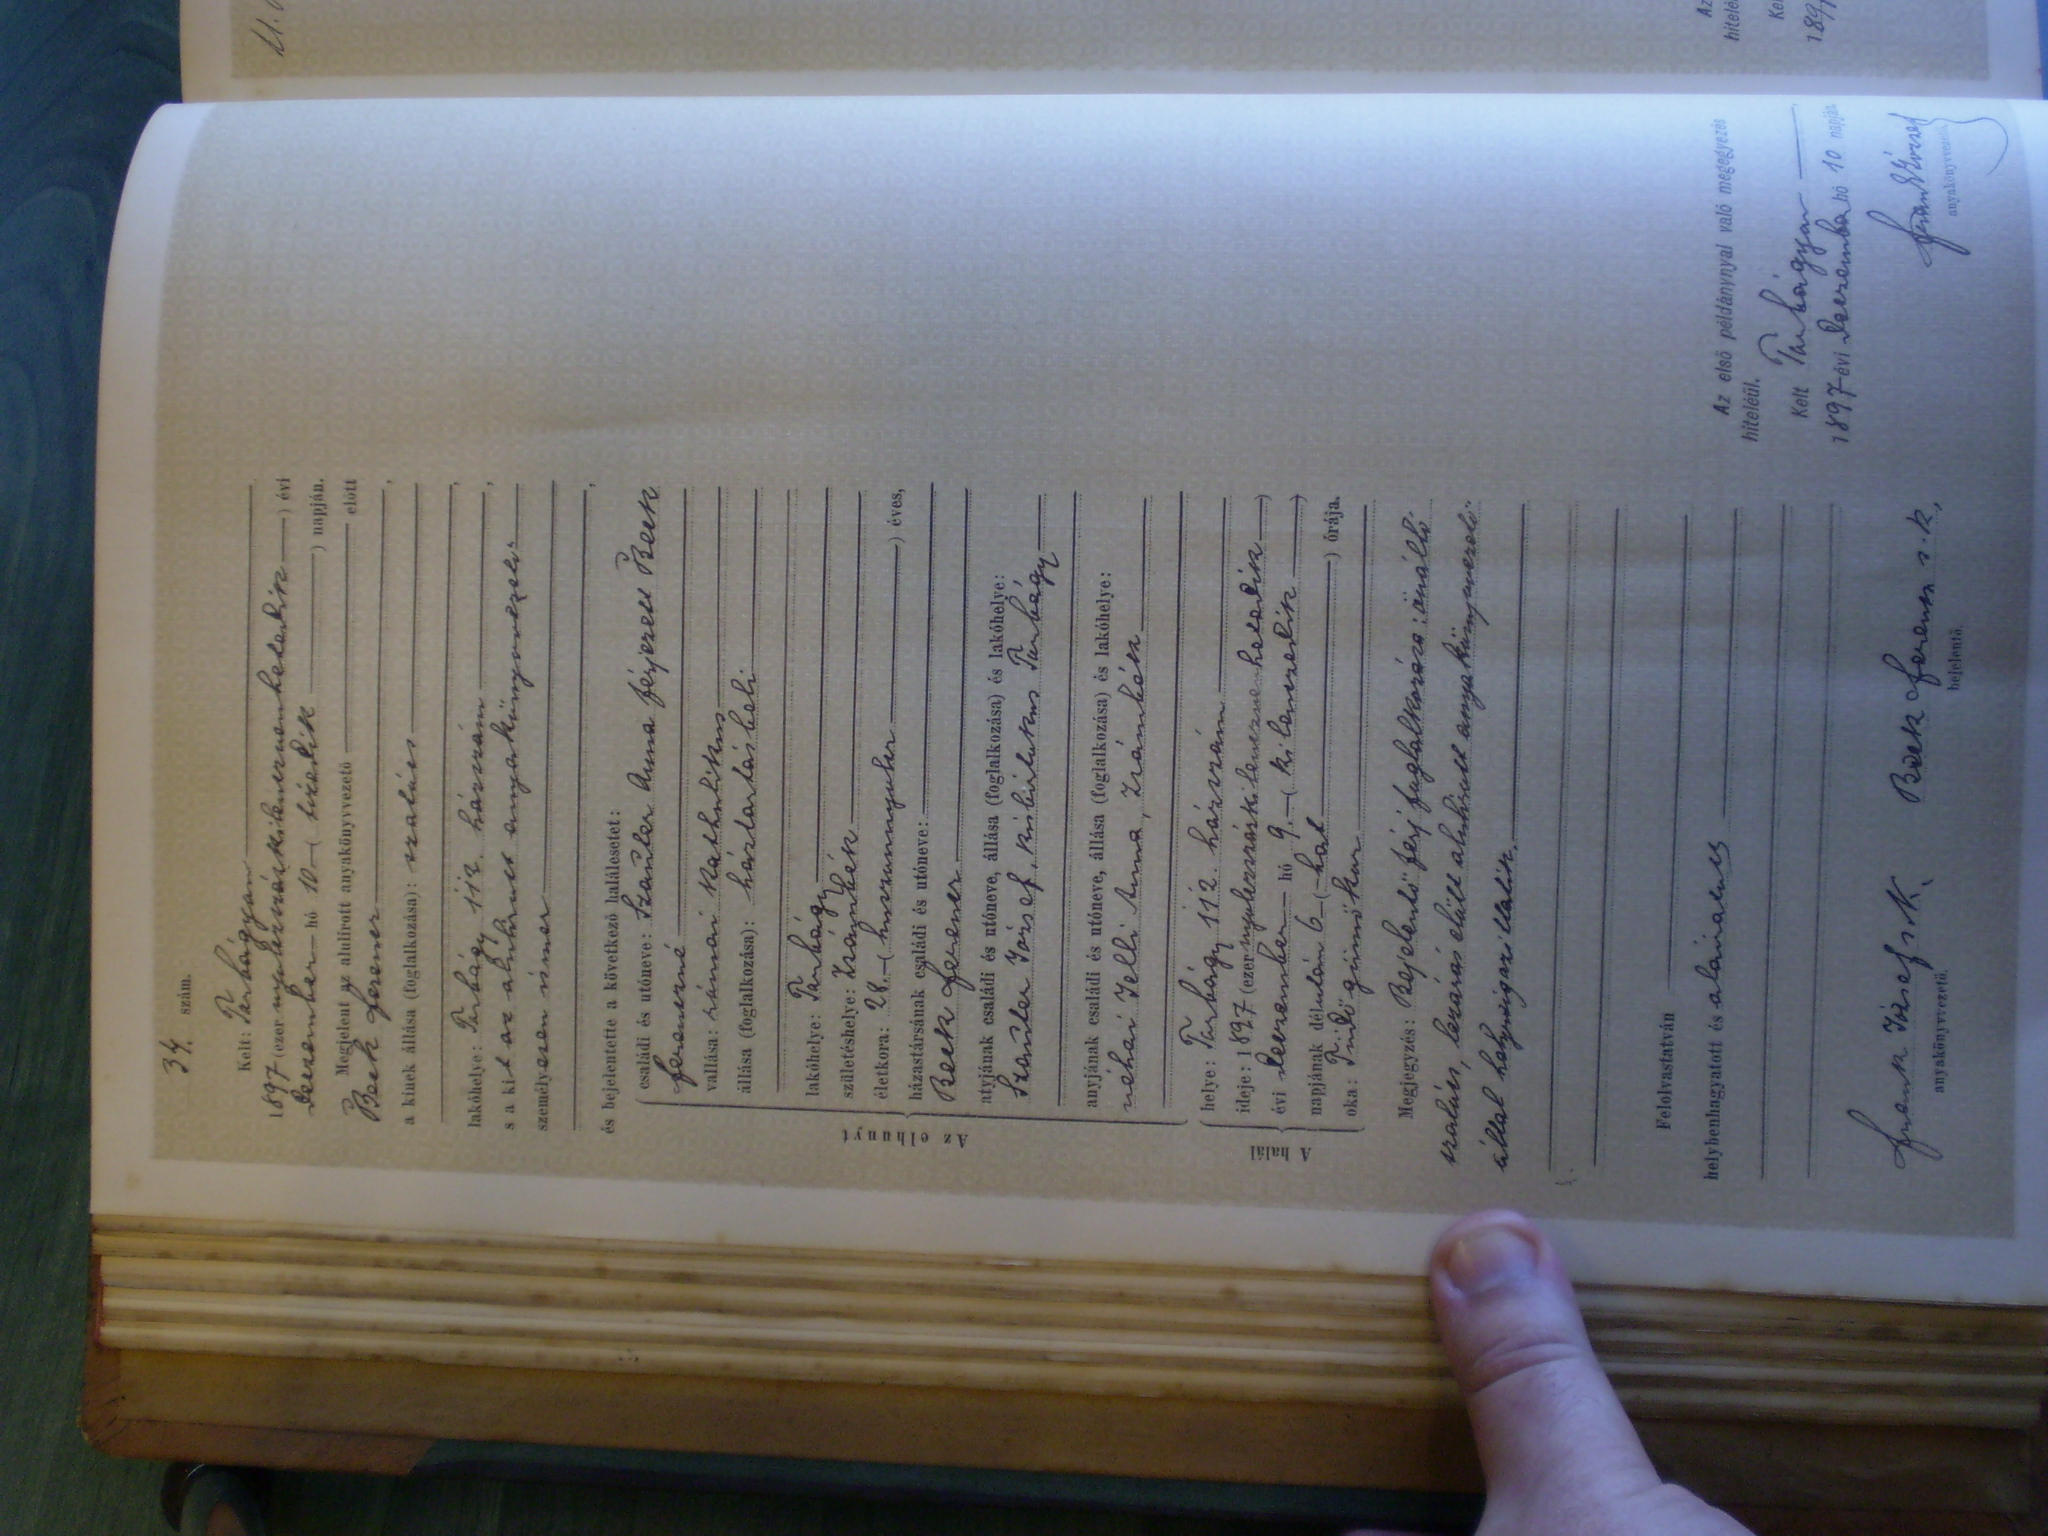 34. szám.
Kelt: Torbágyon
1897 (ezer nyolczszázkilenczvenhetedik) évi
deczember hó 10 (tizedik) napján.
Megjelent az alulirott anyakönyvvezető előtt
Beck Ferencz
a kinek állása (foglalkozása): szatócs
lakóhelye: Torbágy 112. házszám
s a kit az alulirott anyakönyvvezető
személyesen ismer
és bejelentette a következő halálesetet:
Az elhunyt
családi és utóneve: Szauter Anna férjezett Beck
Ferenczné
vallása: római katholikus
állása (foglalkozása): háztartásbeli
lakóhelye: Torbágy
születéshelye: Zsámbék
életkora: 28. (huszonnyolcz) éves,
házastársának családi és utóneve:
Beck Ferencz
atyjának családi és utóneve, állása (foglalkozása) és lakóhelye:
Szauter József, Torbágy
anyjának családi és utóneve, állása (foglalkozása) és lakóhelye:
néhai Telli Anna, Zsámbék
A halál
helye: Torbágy 112. házszám
ideje: 1897 (ezernyolczszázkilenczvenhetedik)
évi deczember hó 9. (kilenczedik)
napjának délután 6 (hat) órája.
oka: Tüdőgümőkor
Megjegyzés: Bejelentő férj foglalkozása: önálló
szatócs, lezárás előtt alulirott anyakönyvvezető
által helyesigazittatik.
Felolvastatván
helybenhagyatott és aláiratott
Frank József s.k. Beck Ferencz s.k.
anyakönyvvezető. bejelentő.
Az első példánynyal való megegyezés
hiteléül.
Kelt Torbágyon
1897 évi deczember hó 10 napján.
Frank József
anyakönyvvezető.
Az
hitelé
Kel
189